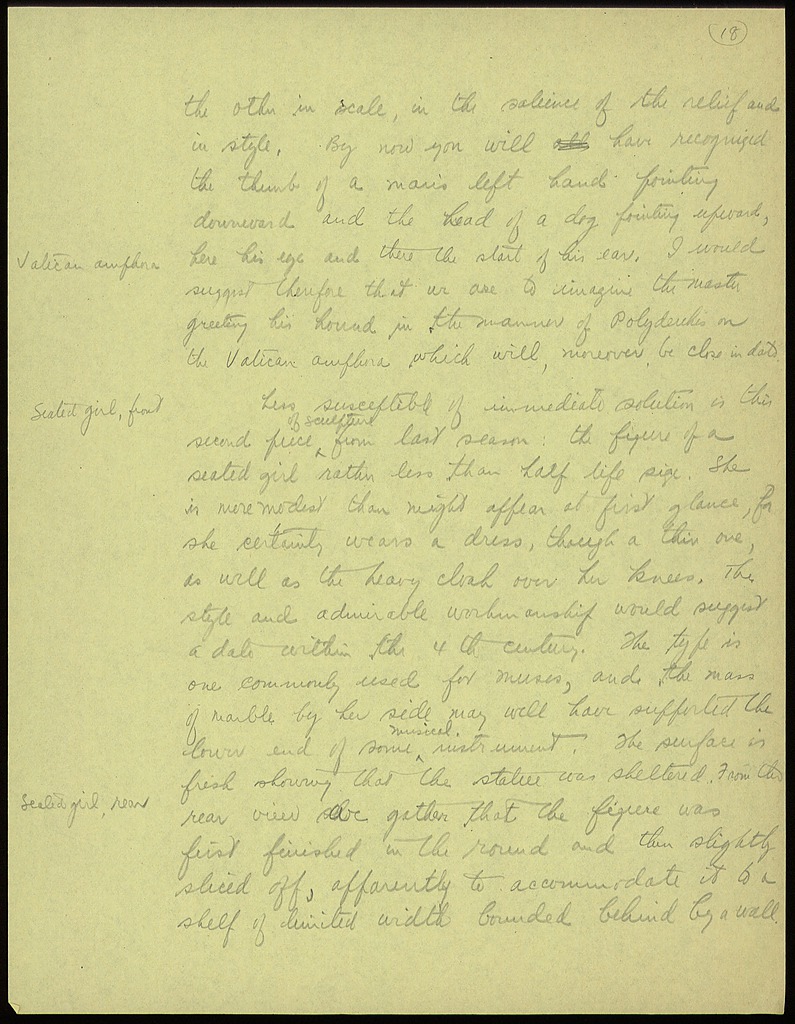 18
the other in scale, in the salience of the relief and
in style. By now you will have recognized
the thumb of a man's left hand pointing
downward and the head of a dog pointing upward,
Vatican amphora
here his eye and there the start of his ear. I would
suggest therefore that we are to imagine the master
greeting his hound in the manner of Polydeukes on
the Vatican amphora which will, moreover, be close in date.
Seated girl, front
Less susceptible of immediate solution is this
second piece of sculpture from last season: the figure of a
seated girl rather less than half life size. She
is more modest than might appear at first glance, for
she certainly wears a dress, though a thin one,
as well as the heavy cloak over her knees. The
style and admirable workmanship would suggest
a date within the 4th century. The type is
one commonly used for muses, and the mass
of marble by her side may well have supported the
lower end of some musical instrument. The surface is
fresh showing that the statue was sheltered. From the
Seated girl, rear
rear view we gather that the figure was
first finished in the round and then slightly
sliced off, apparently to accommodate it to a
shelf of limited width bounded behind by a wall.